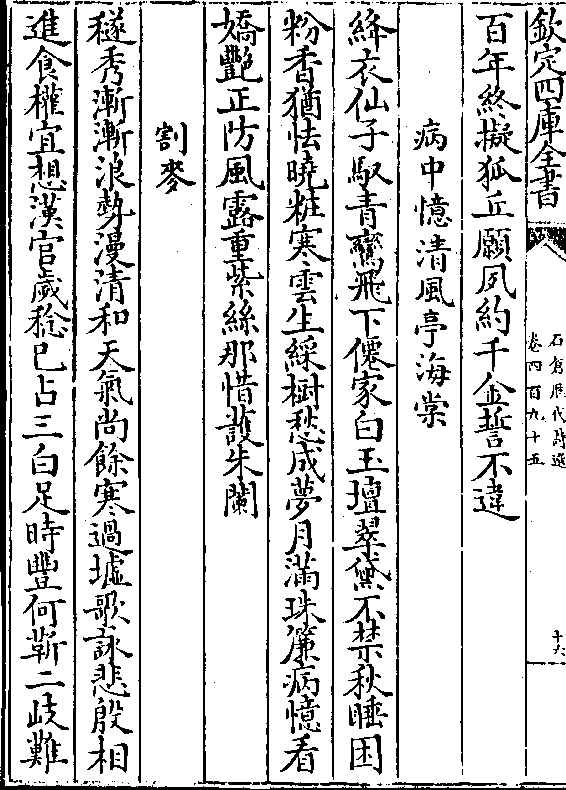 欽定四庫全書
石倉歷代詩選
卷四百九十五
十六
百年終擬狐丘願夙約千金誓不違
病中憶清風亭海棠
絳衣仙子馭青鸞飛下僊家白玉壇翠黛不禁秋睡困
粉香猶怯曉粧寒雲生綵樹愁成夢月滿珠簾病憶看
嬌艷正防風露重紫絲那惜護朱闌
割麥
穟秀漸漸浪勢漫清和天氣尚餘寒過墟歌詠悲殷相
進食權宜想漢官歲稔已占三白足時豐何蘄二歧難